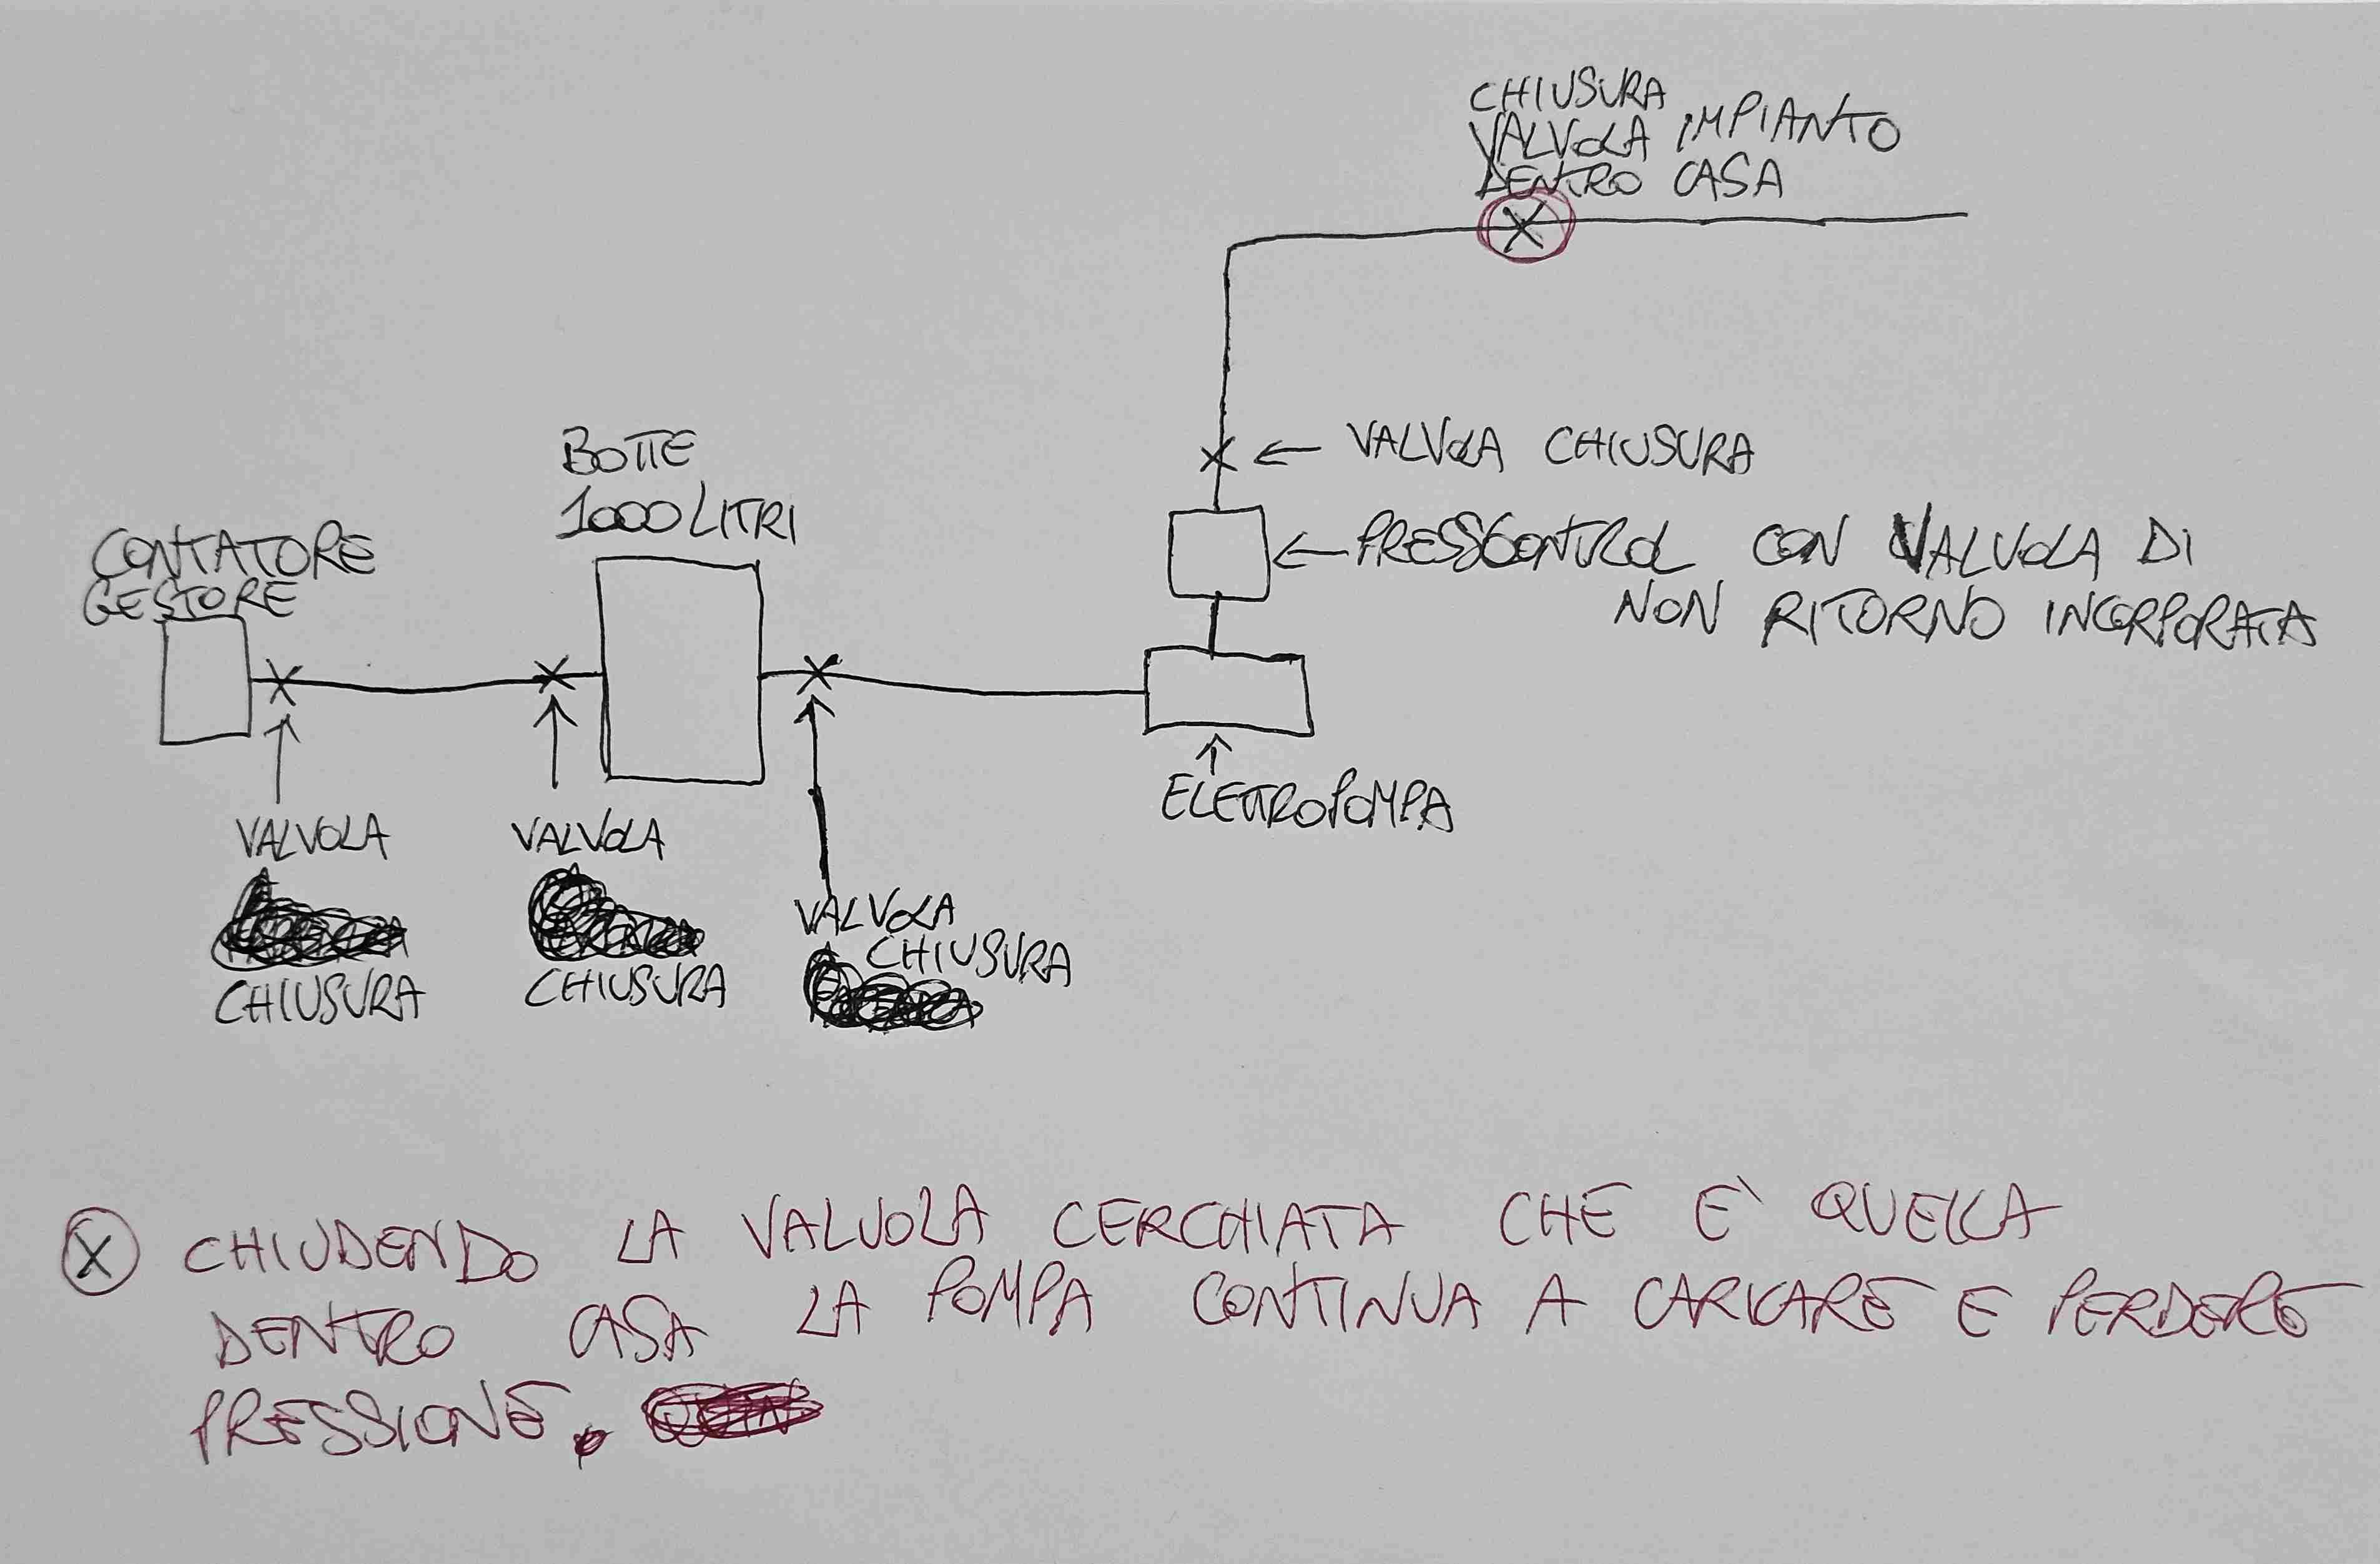 CHIUSURA
VALVOLA IMPIANTO
DENTRO CASA
← VALVOLA CHIUSURA
BOTTE
1000 LITRI
CONTATORE
GESTORE
← PRESSCONTROL CON VALVOLA DI
NON RITORNO INCORPORATA
ELETTROPOMPA
VALVOLA
CHIUSURA
VALVOLA
CHIUSURA
VALVOLA
CHIUSURA
X CHIUDENDO LA VALVOLA CERCHIATA CHE E' QUELLA
DENTRO CASA LA POMPA CONTINUA A CARICARE E PERDERE
PRESSIONE.